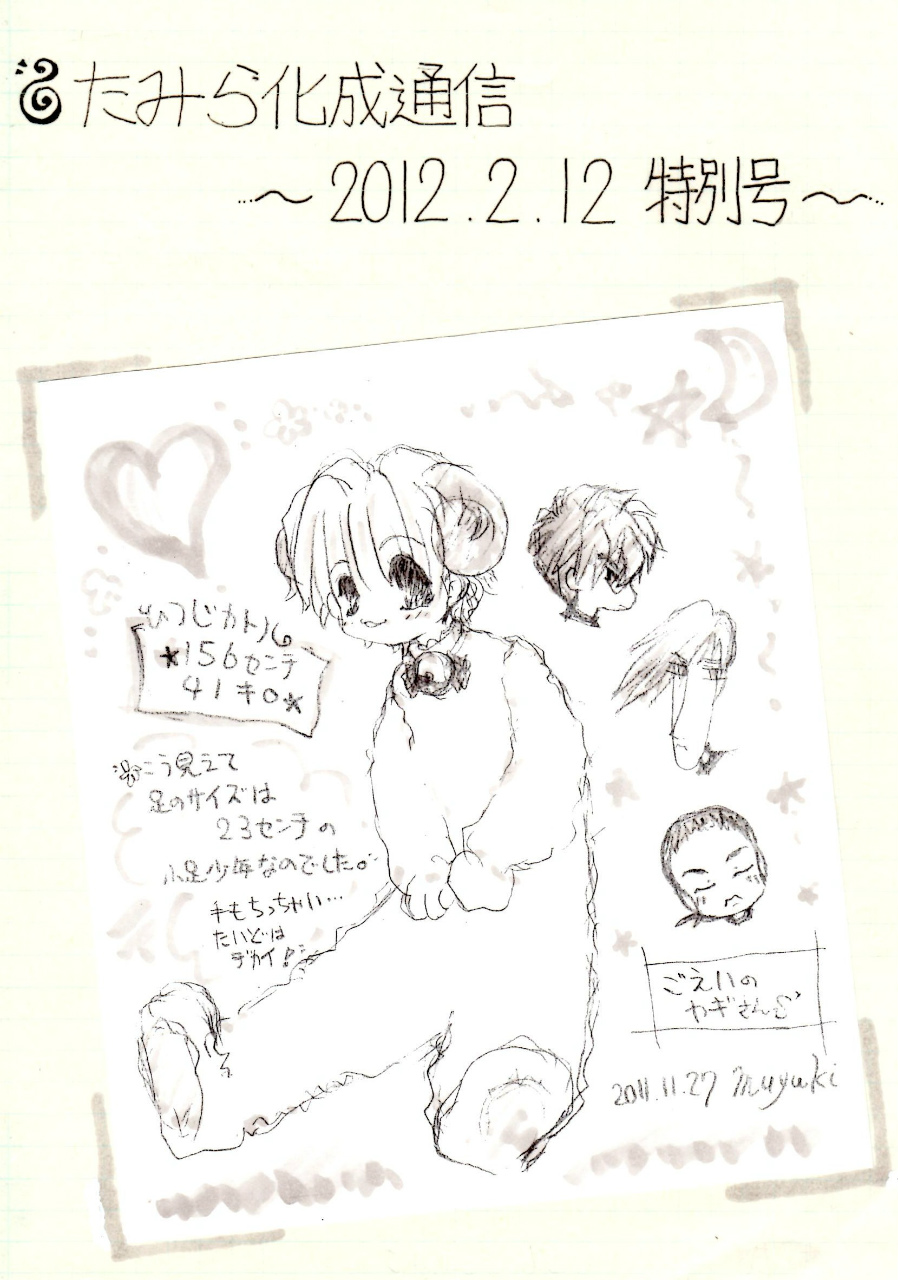 たみら化成通信
～2012.2.12 特別号～
ひつじカトル
★156センチ
41キロ★
こう見えて
足のサイズは
23センチの
小足少年なのでした。
手もちっちゃい…
たいどは
デカイ!
ごえいの
ヤギさんS'
2011.11.27 muyuki